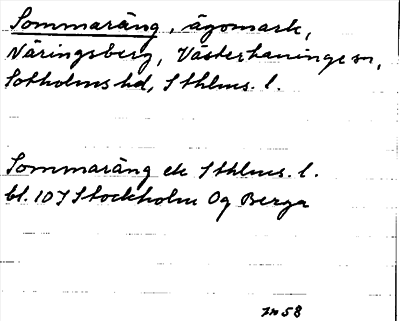 Sommaräng, ägomark,
Näringsberg, Västerhaninge sn,
Sotholms hd, Sthlms. l.
Sommaräng ek Sthlms. l.
bl. 10I Stockholm Og Berga
58